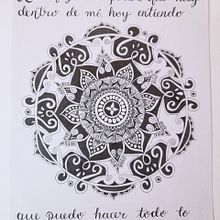 que hay
dentro de mi hoy entiendo
que puedo hacer todo lo